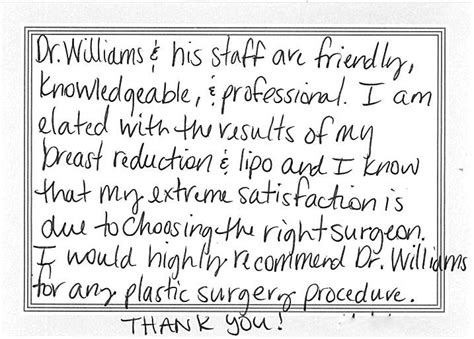 Dr. Williams & his staff are friendly,
knowledgeable, & professional. I am
elated with the results of my
breast reduction & lipo and I know
that my extreme satisfaction is
due to choosing the right surgeon.
I would highly recommend Dr. Williams
for any plastic surgery procedure.
THANK YOU!